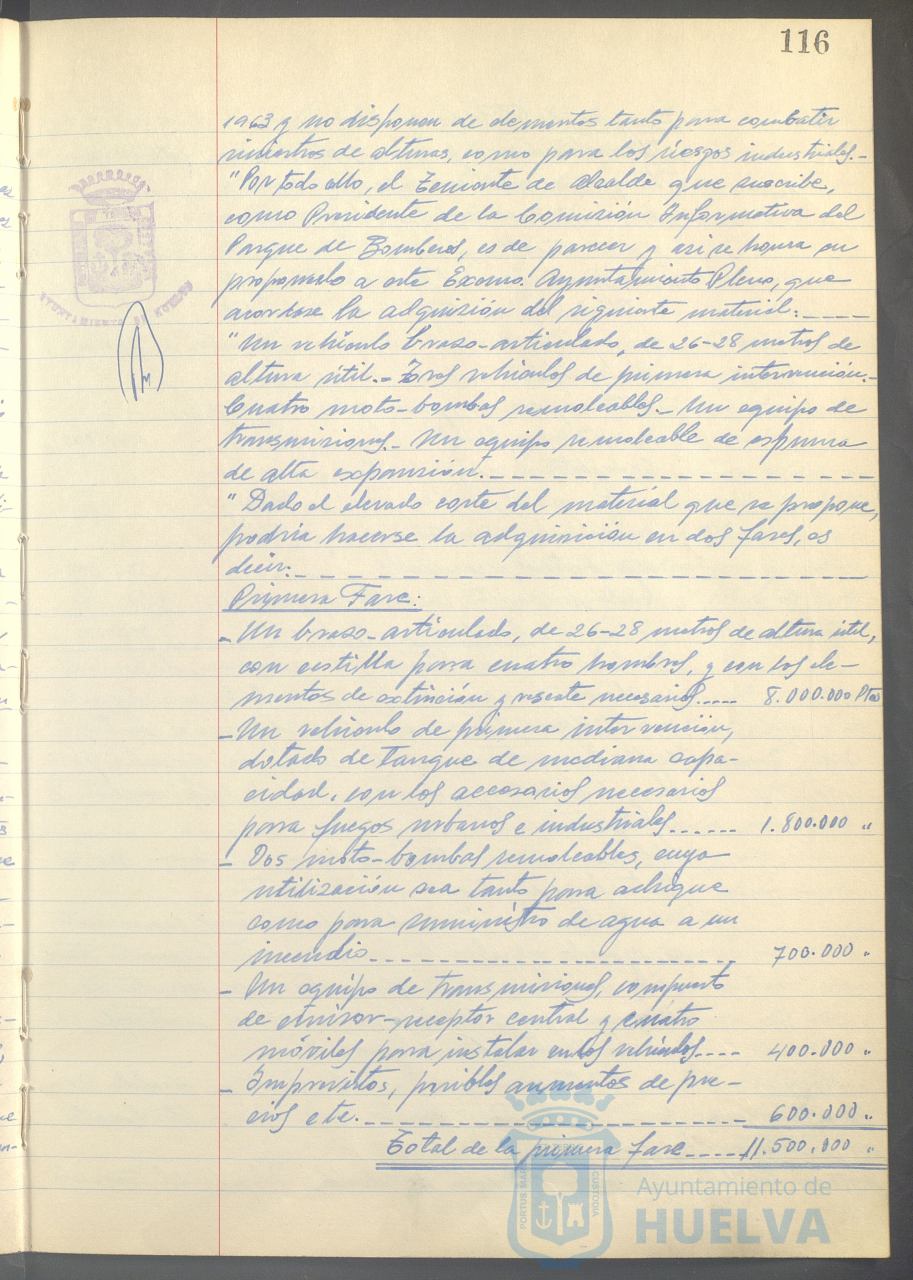 116
1963 y no disponen de elementos tanto para combatir
siniestros de alturas, como para los riesgos industriales.-
"Por todo ello, el Teniente de Alcalde que suscribe,
como Presidente de la Comisión Informativa del
Parque de Bomberos, es de parecer y así se honra en
proponerlo a este Excmo. Ayuntamiento Pleno, que
acordase la adquisición del siguiente material:----
"Un vehículo brazo-articulado, de 26-28 metros de
altura útil.- Tres vehículos de primera intervención.-
Cuatro moto-bombas remolcables.- Un equipo de
transmisiones.- Un equipo remolcable de espuma
de alta expansión.----------------
"Dado el elevado coste del material que se propone,
podría hacerse la adquisición en dos fases, es
decir:--------------------
Primera Fase:
- Un brazo-articulado, de 26-28 metros de altura útil,
con cestilla para cuatro hombres, y con los ele-
mentos de extinción y rescate necesarios..... 8.000.000 Ptas
- Un vehículo de primera intervención,
dotado de tanque de mediana capa-
cidad, con los accesorios necesarios
para fuegos urbanos e industriales...... 1.800.000 "
- Dos moto-bombas remolcables, cuya
utilización sea tanto para achique
como para suministro de agua a un
incendio.-------------------- 700.000 "
- Un equipo de transmisiones, compuesto
de emisor-receptor central y cuatro
móviles para instalar en los vehículos.---- 400.000 "
- Imprevistos, posibles aumentos de pre-
cios etc.-------------------- 600.000 "
Total de la primera fase----- 11.500.000 "
AYUNTAMIENTO DE HUELVA
PORTUS MARIS
CUSTODIA
Ayuntamiento de
HUELVA